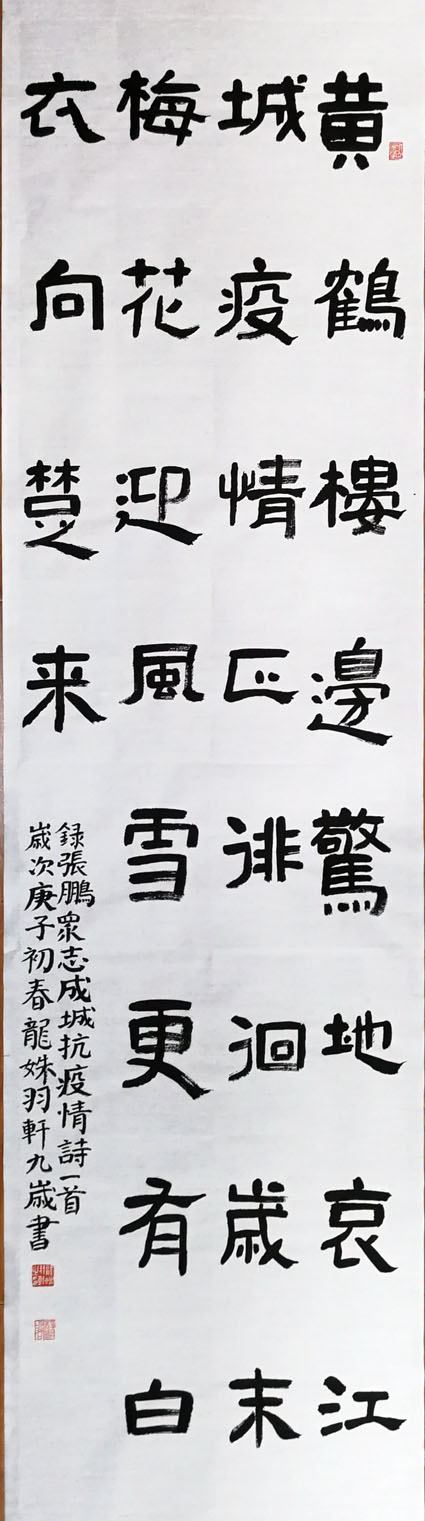 黄鶴樓邊驚地哀江
城疫情正徘徊歲末
梅花迎風雪更有白
衣向楚来
録張鵬衆志成城抗疫情詩一首
歲次庚子初春龍姝羽軒九歲書